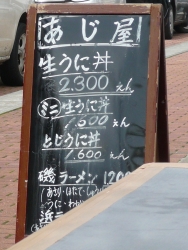 あじ屋
生うに丼
2.300えん
ミニ生うに丼
500えん
とじうに丼
1.600えん
磯ラーメン 1200